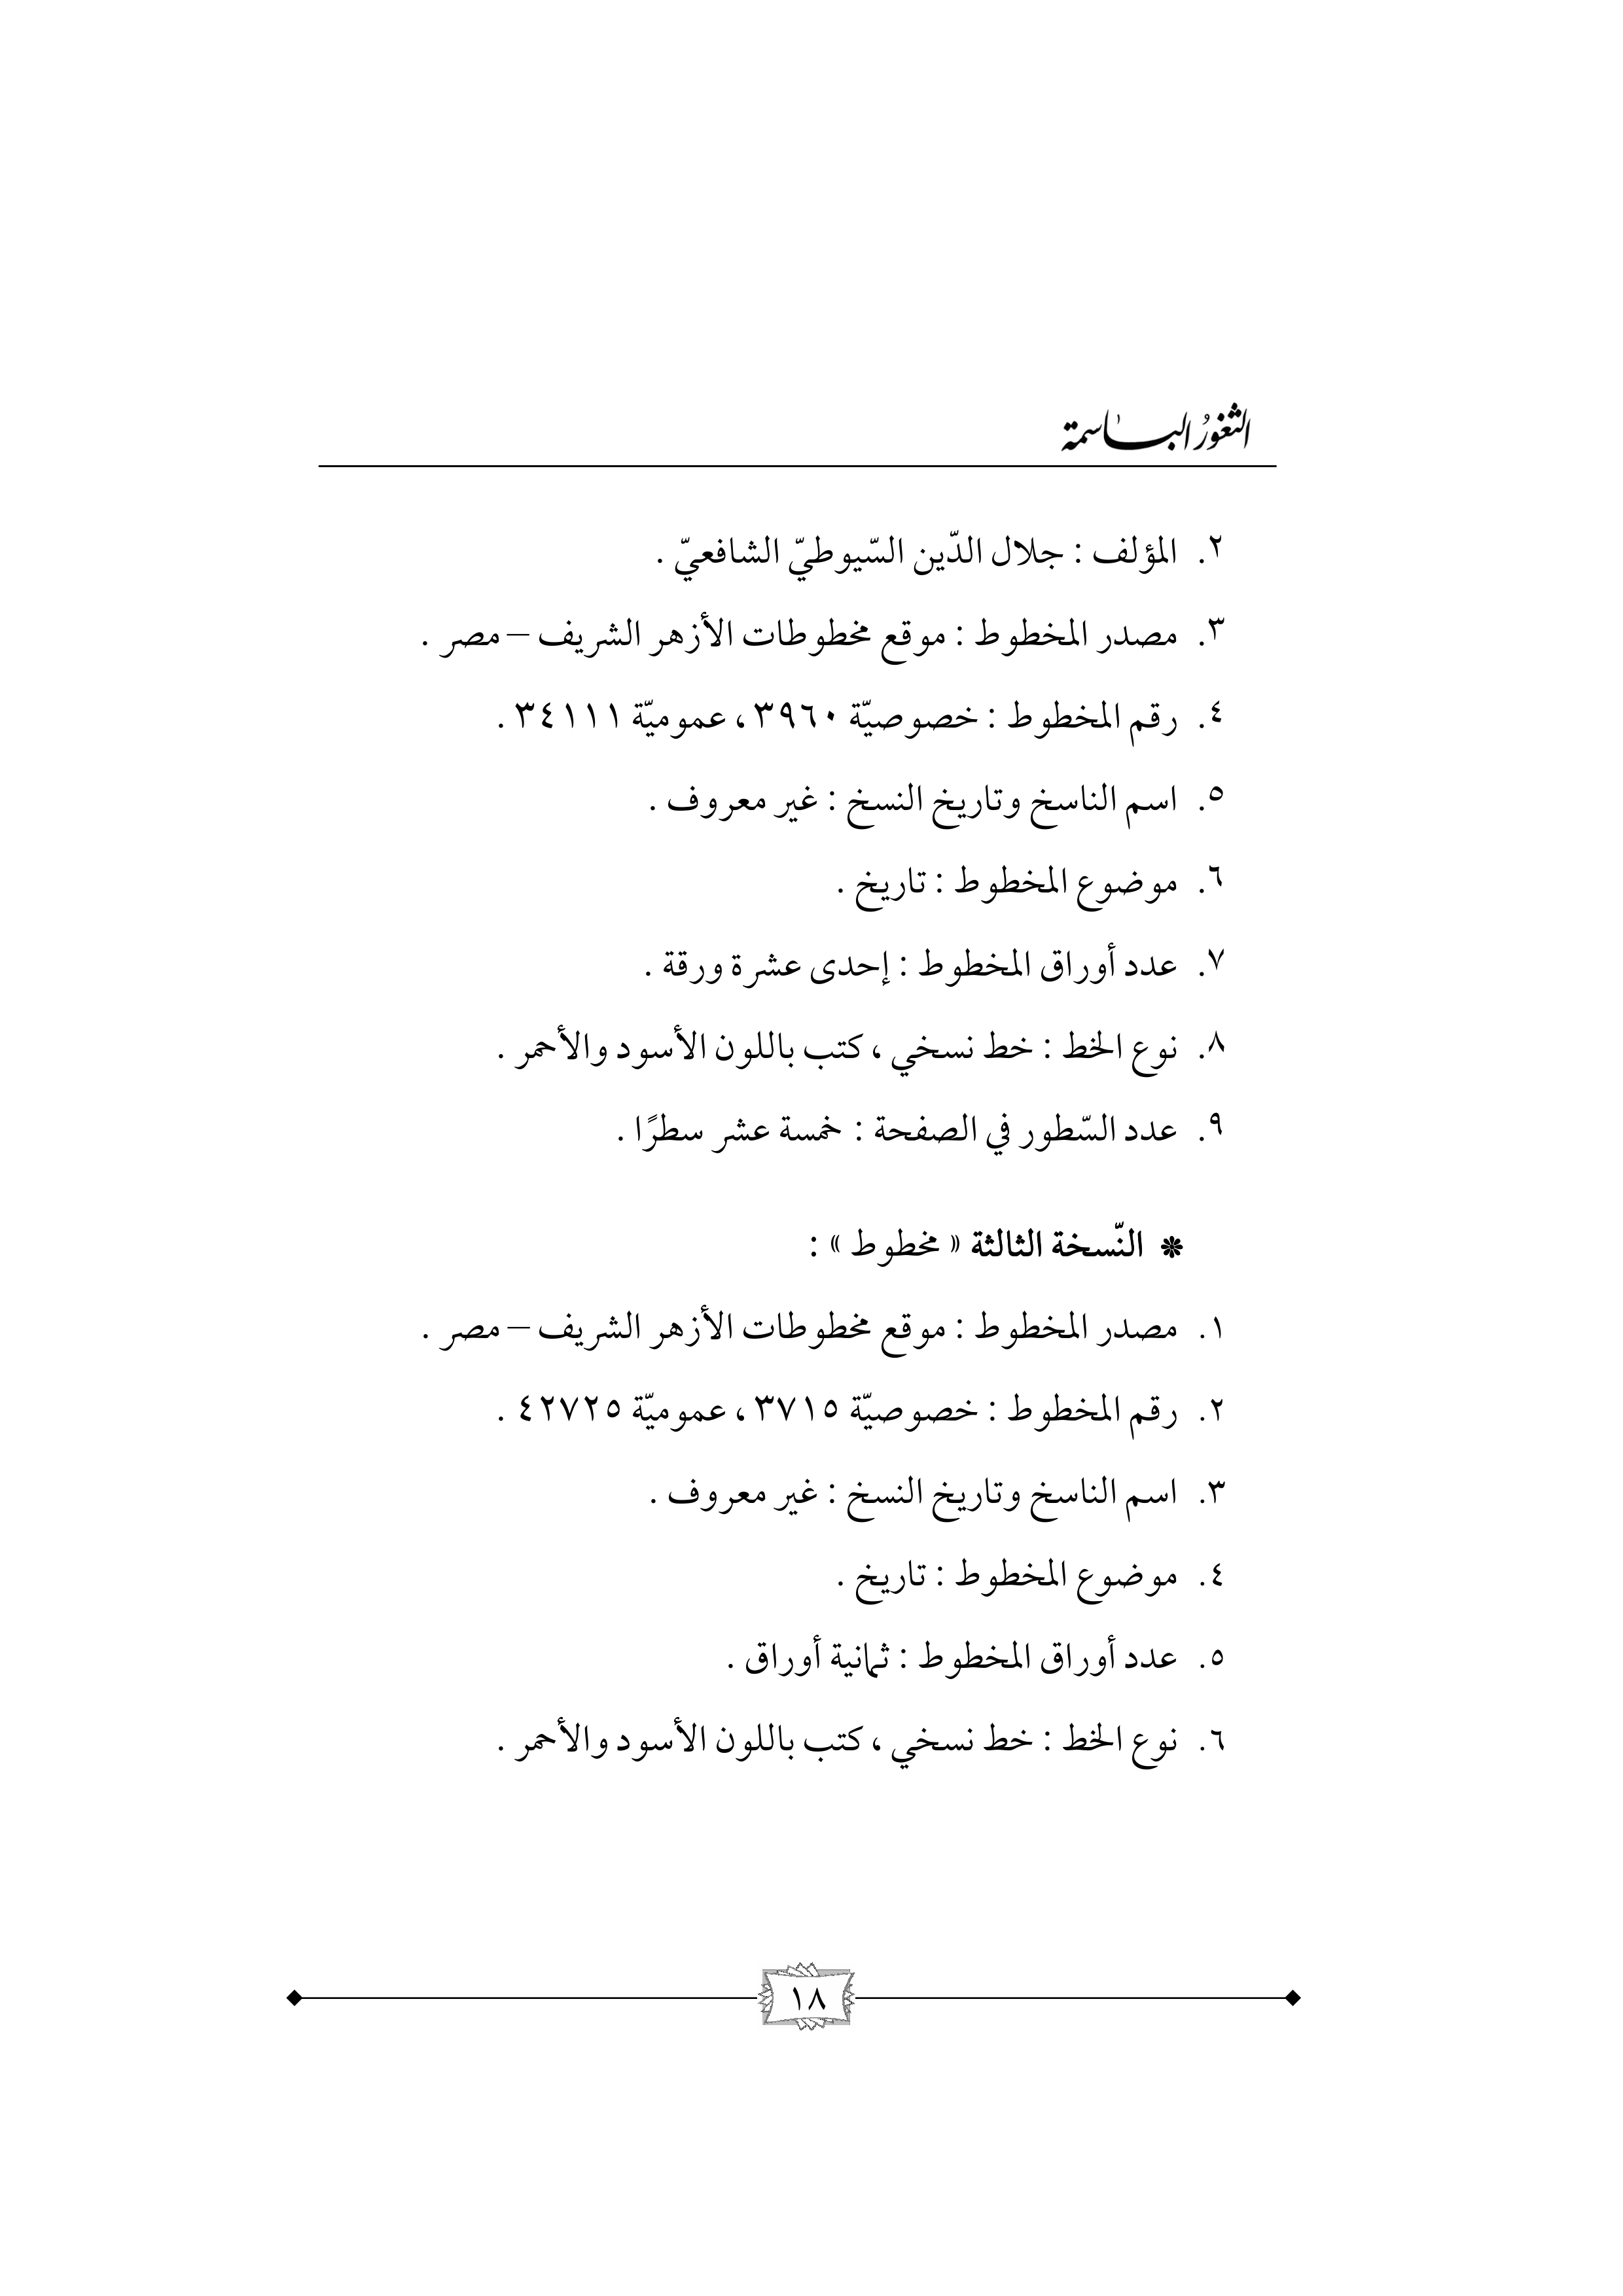 الثغورُ الباسمة
٢. المؤلف : جلال الدّين السّيوطيّ الشافعيّ .
٣. مصدر المخطوط : موقع مخطوطات الأزهر الشريف – مصر .
٤. رقم المخطوط : خصوصيّة ٣٩٦٠ ، عموميّة ٣٤١١١ .
٥. اسم الناسخ وتاريخ النسخ : غير معروف .
٦. موضوع المخطوط : تاريخ .
٧. عدد أوراق المخطوط : إحدى عشرة ورقة .
٨. نوع الخط : خط نسخي ، كتب باللون الأسود والأحمر .
٩. عدد السّطور في الصفحة : خمسة عشر سطرًا .
❋ النّسخة الثالثة « مخطوط » :
١. مصدر المخطوط : موقع مخطوطات الأزهر الشريف – مصر .
٢. رقم المخطوط : خصوصيّة ٣٧١٥ ، عموميّة ٤٢٧٢٥ .
٣. اسم الناسخ وتاريخ النسخ : غير معروف .
٤. موضوع المخطوط : تاريخ .
٥. عدد أوراق المخطوط : ثمانية أوراق .
٦. نوع الخط : خط نسخي ، كتب باللون الأسود والأحمر .
١٨